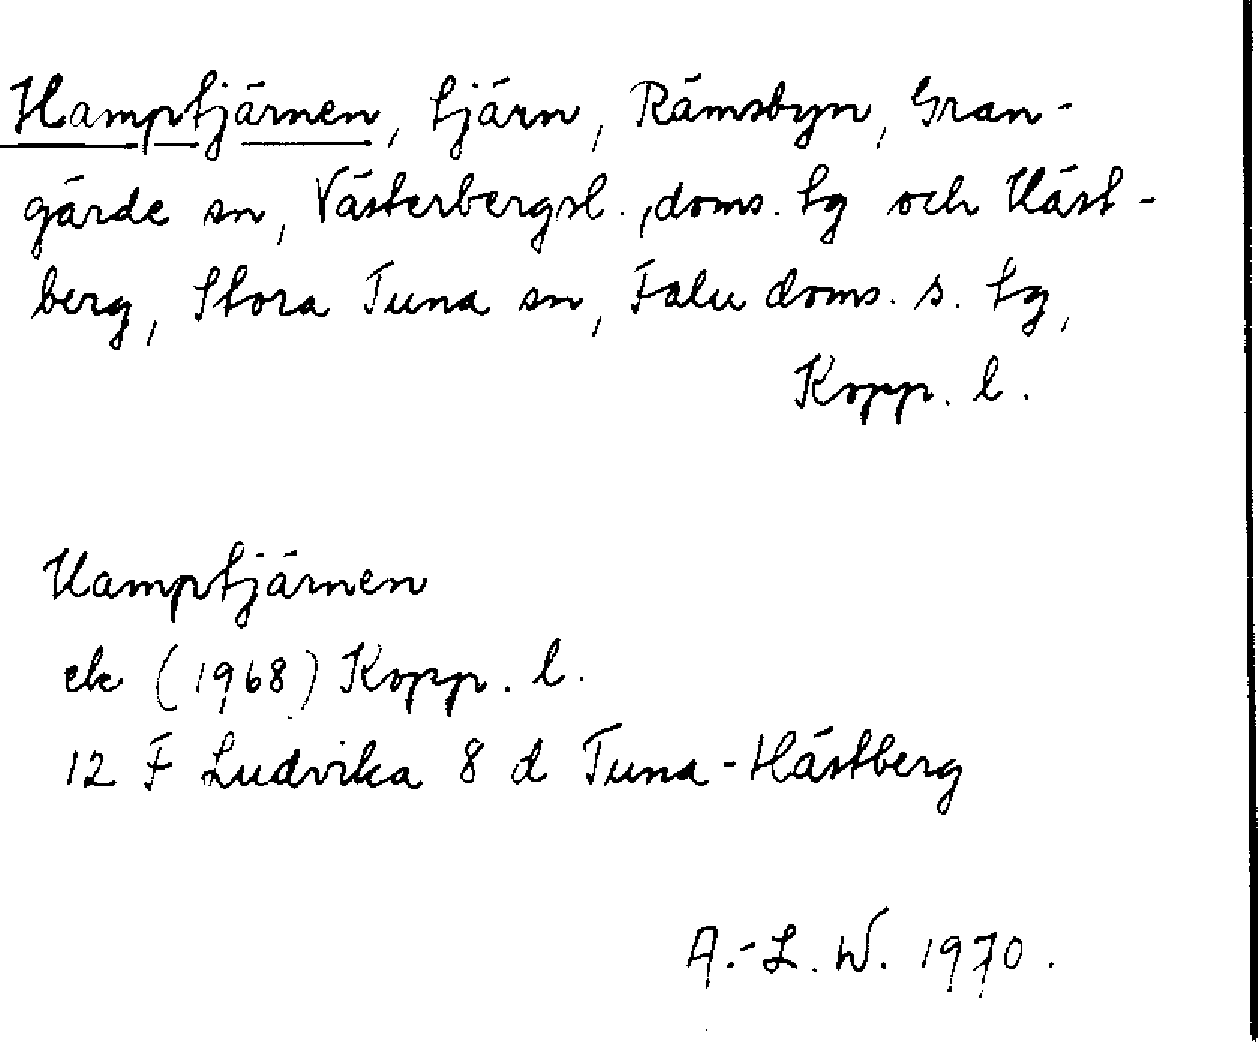 Hamptjärnen, tjärn, Rämsbyn, Gran-
gärde sn, Västerbergsl. , doms. tg och Häst-
berg, Stora Tuna sn, Falu doms. s. tg,
Kopp. l.
Hamptjärnen
ek (1968) Kopp. l.
12 F Ludvika 8 d Tuna-Hästberg
A.-L. W. 1970.